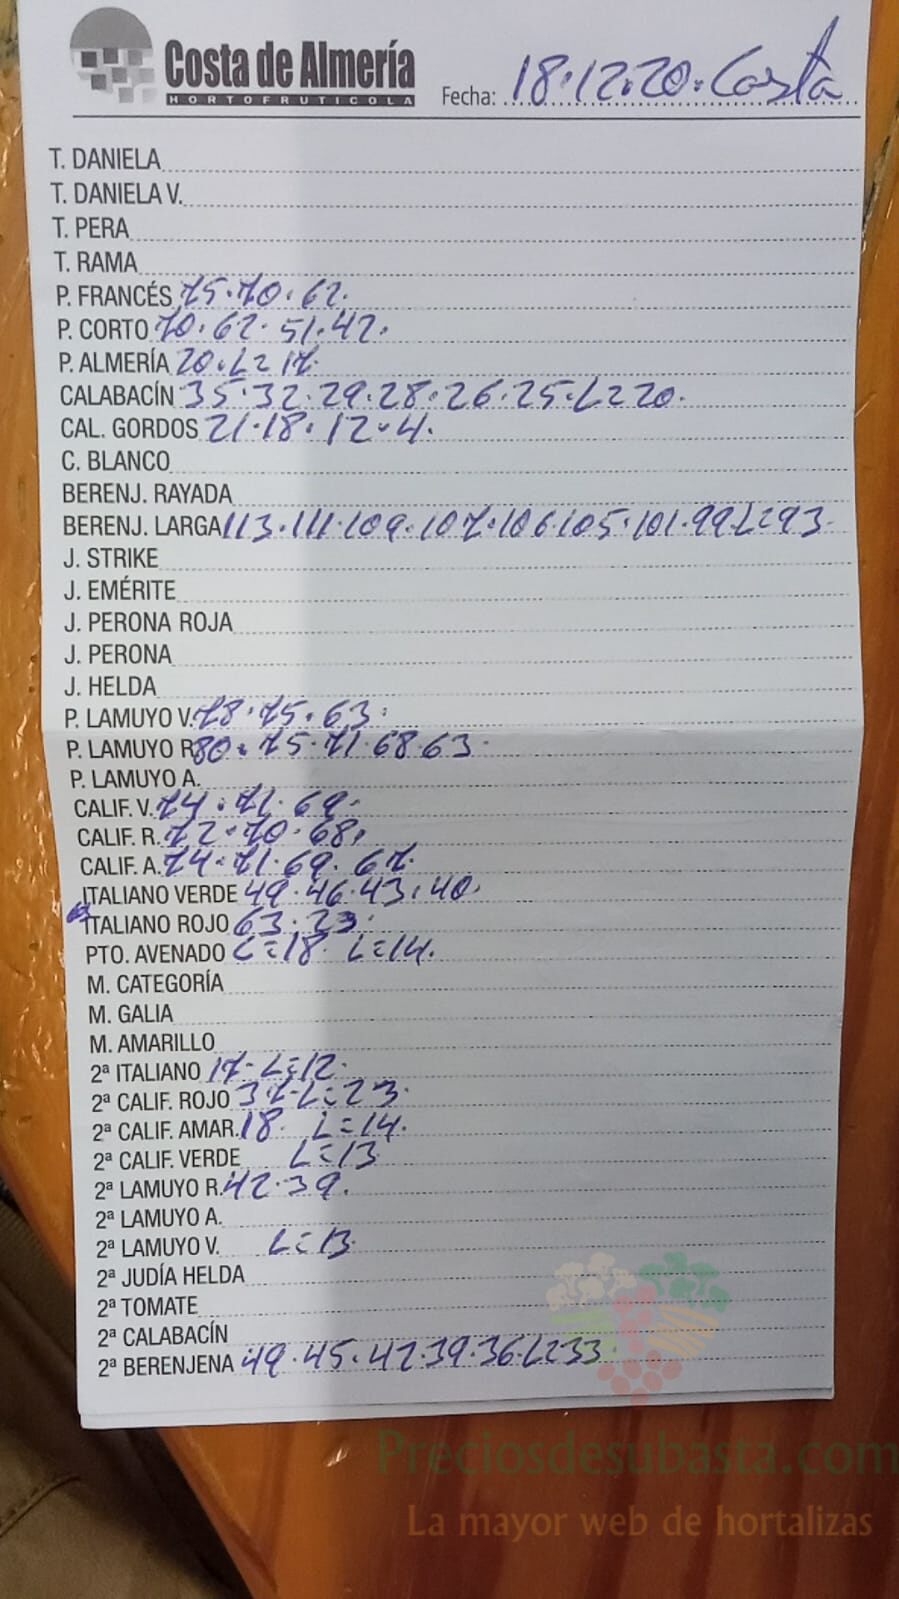 Costa de Almería
HORTOFRUTICOLA
Fecha: 18.12.20. Costa
T. DANIELA
T. DANIELA V.
T. PERA
T. RAMA
P. FRANCÉS 75.70.62.
P. CORTO 70.62.51.42.
P. ALMERÍA 20.L=17.
CALABACÍN 35.32.29.28.26.25.L=20.
CAL. GORDOS 21.18.12.4.
C. BLANCO
BERENJ. RAYADA
BERENJ. LARGA 113.111.109.107.106.105.101.99.L=93.
J. STRIKE
J. EMÉRITE
J. PERONA ROJA
J. PERONA
J. HELDA
P. LAMUYO V. 78.75.63.
P. LAMUYO R. 80.75.71.68.63.
P. LAMUYO A.
CALIF. V. 74.71.69.
CALIF. R. 72.70.68.
CALIF. A. 74.71.69.67.
ITALIANO VERDE 49.46.43.40.
ITALIANO ROJO 63.23.
PTO. AVENADO L=18. L=14.
M. CATEGORÍA
M. GALIA
M. AMARILLO
2ª ITALIANO 17-L=12.
2ª CALIF. ROJO 37-L=23.
2ª CALIF. AMAR. 18. L=14.
2ª CALIF. VERDE L=13
2ª LAMUYO R. 42.39.
2ª LAMUYO A.
2ª LAMUYO V. L=13.
2ª JUDÍA HELDA
2ª TOMATE
2ª CALABACÍN
2ª BERENJENA 49.45.42.39.36.L=33.
Preciosdesubasta.com
La mayor web de hortalizas